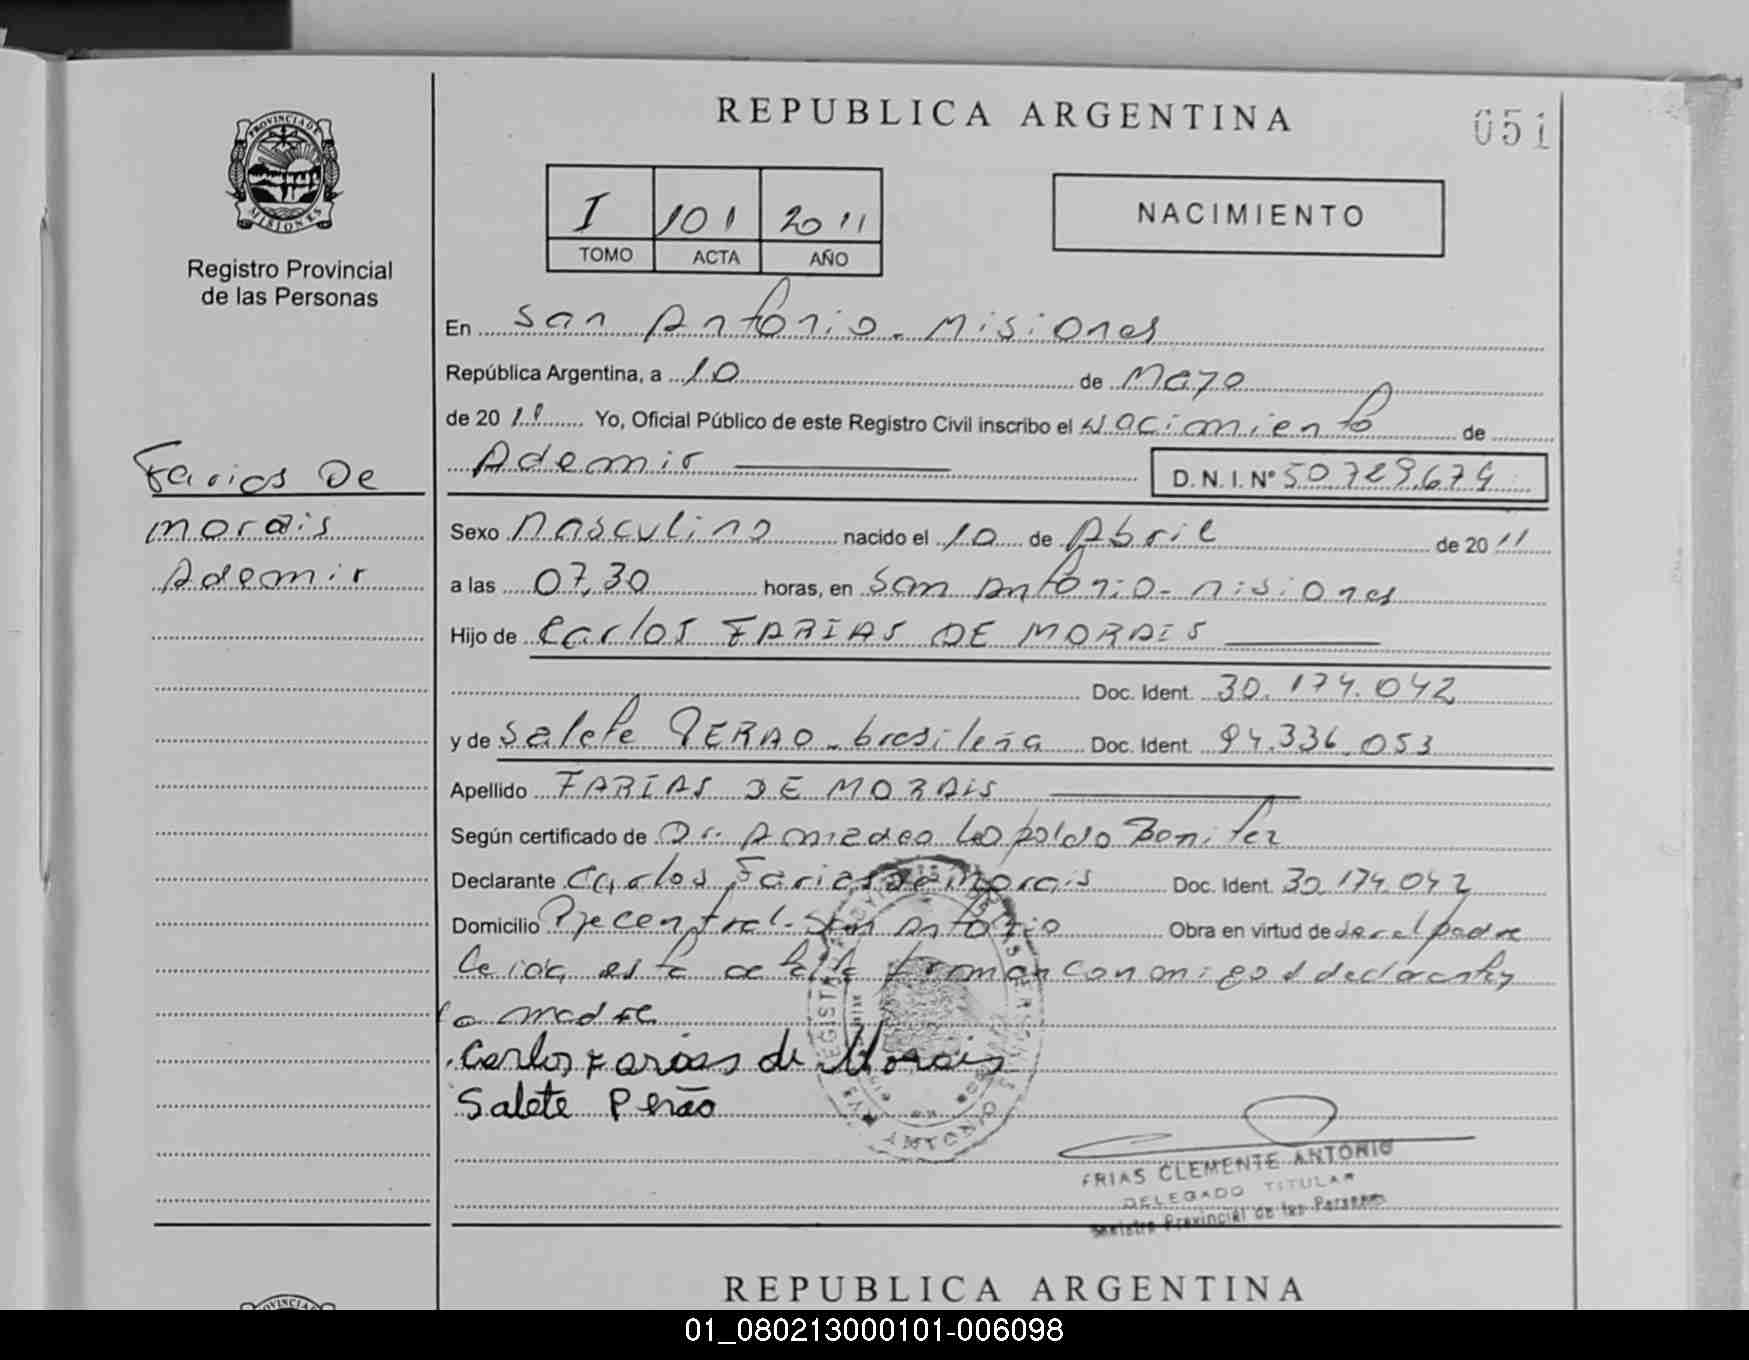 REPUBLICA ARGENTINA
051
PROVINCIA DE
MISIONES
Registro Provincial
de las Personas
I 101 2011
TOMO ACTA AÑO
NACIMIENTO
En San Antonio - Misiones
República Argentina, a 10 de Mayo
de 20 11 Yo, Oficial Público de este Registro Civil inscribo el Nacimiento de
Ademir D.N.I. Nº 50.729.674
Farias De
morais
Ademir
Sexo Masculino nacido el 10 de Abril de 20 11
a las 07,30 horas, en San Antonio - Misiones
Hijo de Carlos FARIAS DE MORAIS
Doc. Ident. 30.174.042
y de Salete PERAO - brasileña Doc. Ident. 94.336.053
Apellido FARIAS DE MORAIS
Según certificado de Dr. Amadeo Leopoldo Benitez
Declarante Carlos Farias de Morais Doc. Ident. 30.174.042
Domicilio Pje central - San Antonio Obra en virtud de de ser el padre
Leida esta acta la firman conmigo el declarante y
la madre
Carlos Farias de Morais
Salete Perão
FRIAS CLEMENTE ANTONIO
DELEGADO TITULAR
Registro Provincial de las Personas
REPUBLICA ARGENTINA
PROVINCIA DE
01_080213000101-006098